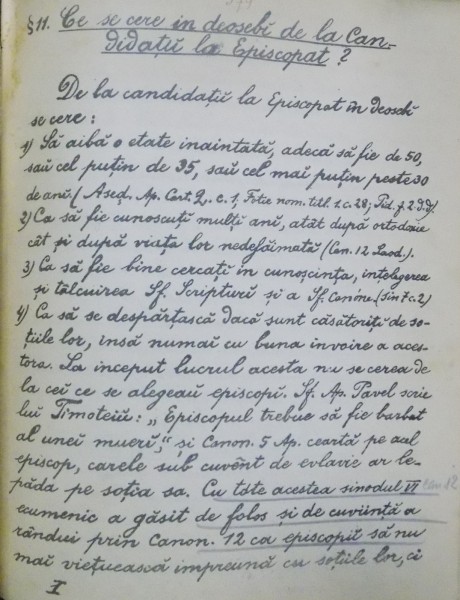 § 11. Ce se cere in deosebi de la Can-
didații la Episcopat?
De la candidații la Episcopat in deosebi
se cere:
1) Să aibă o etate inaintată, adecă să fie de 50,
sau cel puțin de 35, sau cel mai puțin peste 30
de ani. (Așed. Ap. Cart. 2. c. 1, Fotie nom. titl. 1. c. 28;
2) Ca să fie cunoscuți mulți ani, atât după ortodoxie
cât și după viața lor nedefăimată (Can. 12 Laod.).
3) Ca să fie bine cercați in cunoscința, ințelegerea
și tâlcuirea Sf. Scripturi și a Sf. Canóne. (Sin 7 c. 2)
4) Ca să se despărțască dacă sunt căsătoriți de so-
țiile lor, insă numai cu buna invoire a aces-
tora. La inceput lucrul acesta nu se cerea de
la cei ce se alegeau episcopi. Sf. Ap. Pavel scrie
lui Timoteiu: „Episcopul trebue să fie barbat
al unei mueri," și Canon. 5 Ap. ceartă pe acel
episcop, carele sub cuvênt de evlavie ar le-
păda pe soția sa. Cu tóte acestea sinodul VI can 12
ecumenic a găsit de folos și de cuviință a
rândui prin Canon. 12 ca episcopii să nu
mai viețuească impreună cu soțiile lor, ci
I